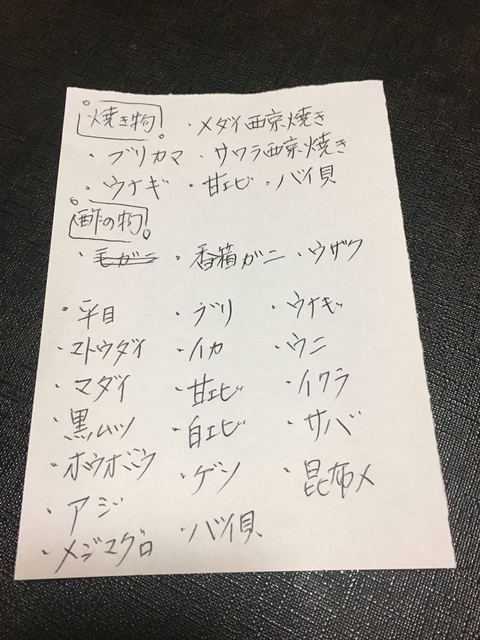 焼き物 ・メダイ西京焼き
・ブリカマ ・サワラ西京焼き
・ウナギ ・甘エビ ・バイ貝
酢の物
・毛ガニ ・香箱ガニ ・ウザク
・平目 ・ブリ ・ウナギ
・マトウダイ ・イカ ・ウニ
・マダイ ・甘エビ ・イクラ
・黒ムツ ・白エビ ・サバ
・ホウボウ ・ゲソ ・昆布〆
・アジ
・メジマグロ ・バイ貝